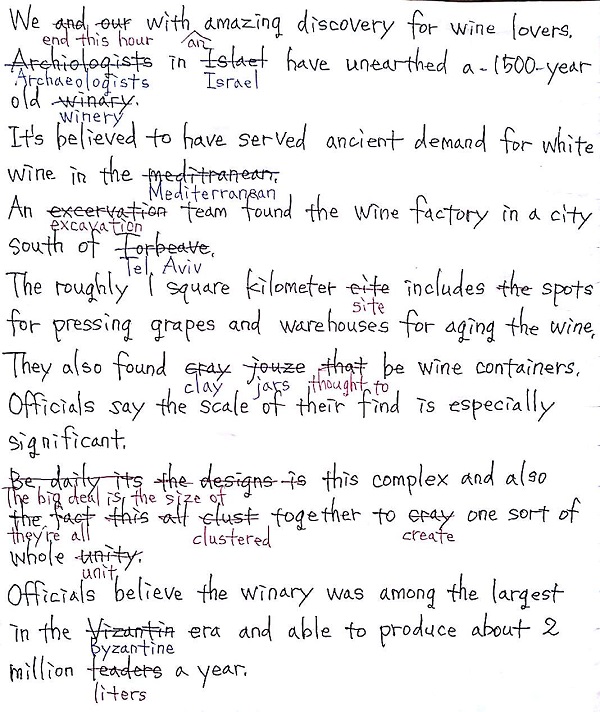 We and our with amazing discovery for wine lovers.
end this hour an
Archiologists in Islaet have unearthed a-1500-year
Archaeologists Israel
old winary.
winery
It's believed to have served ancient demand for white
wine in the meditranean.
Mediterranean
An excervation team found the wine factory in a city
excavation
south of Torbeave.
Tel Aviv
The roughly 1 square kilometer cite includes the spots
site
for pressing grapes and warehouses for aging the wine.
They also found cray jouze that be wine containers.
clay jars thought to
Officials say the scale of their find is especially
significant.
Be daily its the designs is this complex and also
The big deal is, the size of
the fact this all clust together to cray one sort of
they're all clustered create
whole unity.
unit
Officials believe the winary was among the largest
in the Vizantin era and able to produce about 2
Byzantine
million leaders a year.
liters